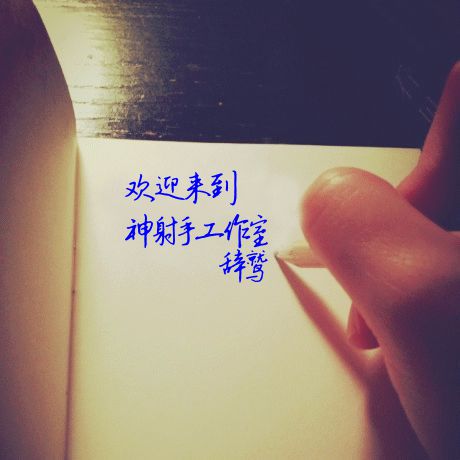 欢迎来到
神射手工作室
辞鹫